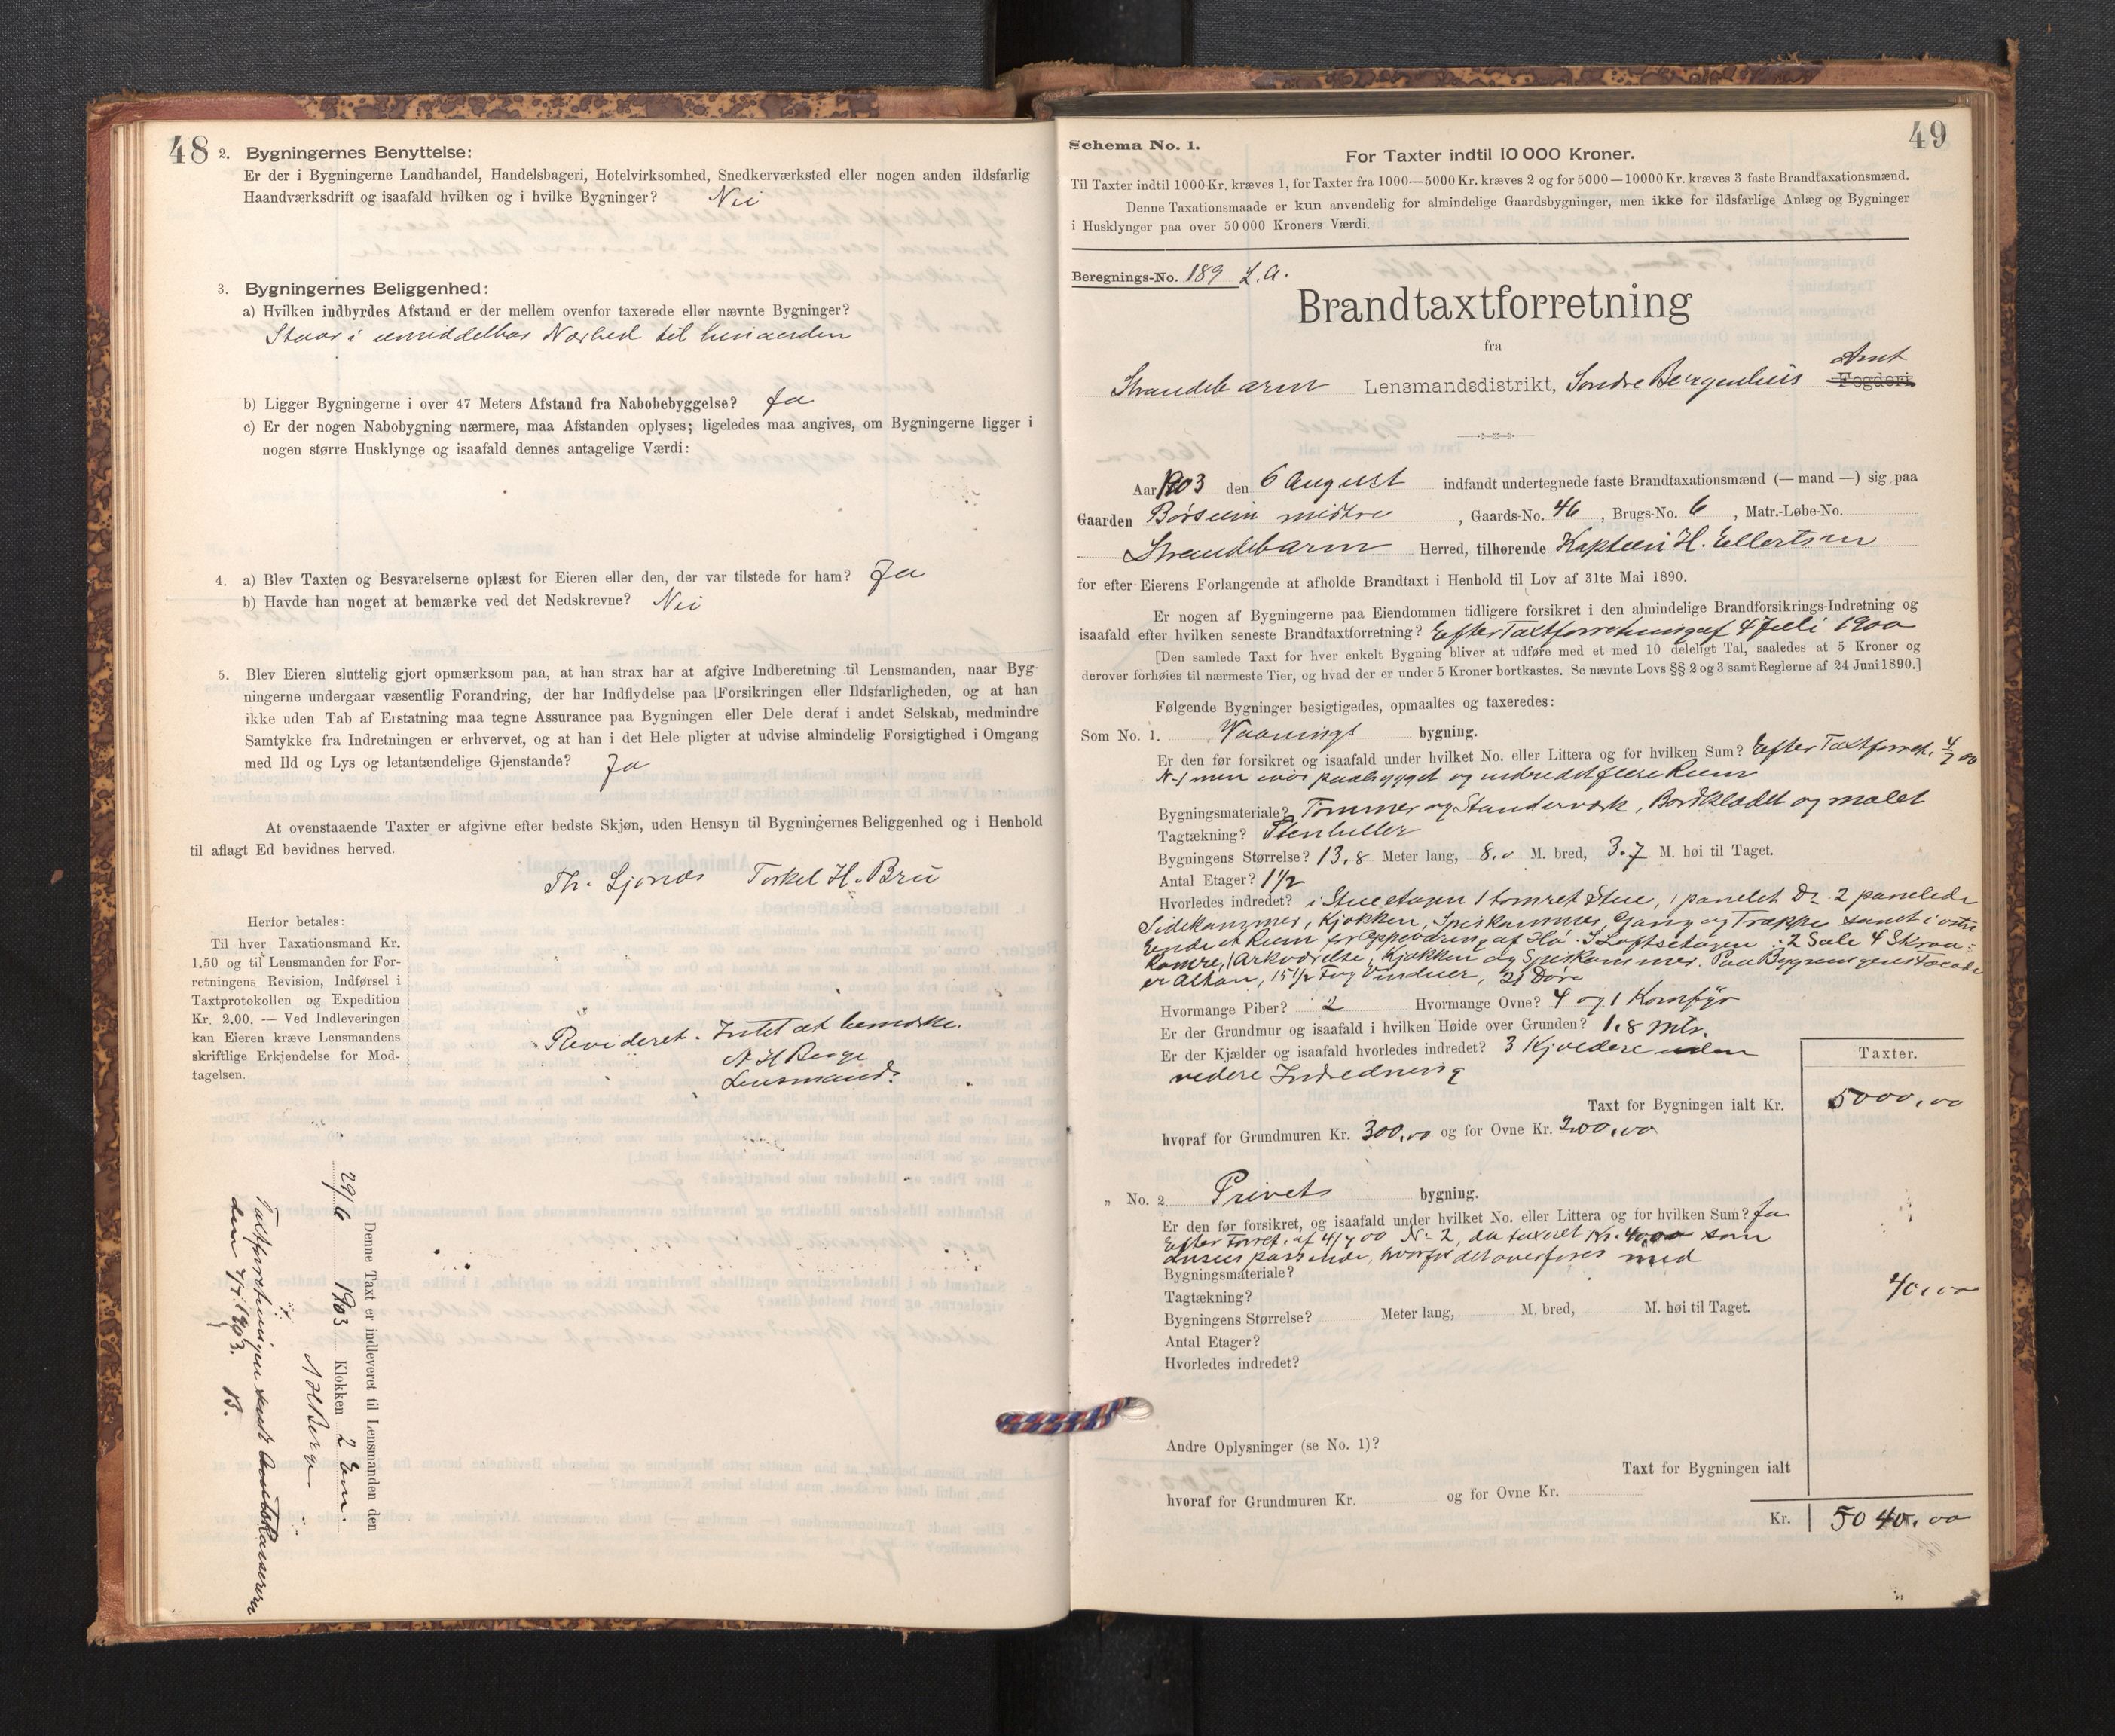 48
2. Bygningernes Benyttelse:
Er der i Bygningerne Landhandel, Handelsbageri, Hotelvirksomhed, Snedkerværksted eller nogen anden ildsfarlig
Haandværksdrift og isaafald hvilken og i hvilke Bygninger? Nei
3. Bygningernes Beliggenhed:
a) Hvilken indbyrdes Afstand er der mellem ovenfor taxerede eller nævnte Bygninger?
Staar i umiddelbar Nærhed til hinanden
b) Ligger Bygningerne i over 47 Meters Afstand fra Nabobebyggelse? Ja
c) Er der nogen Nabobygning nærmere, maa Afstanden oplyses; ligeledes maa angives, om Bygningerne ligger i
nogen større Husklynge og isaafald dennes antagelige Værdi:
4. a) Blev Taxten og Besvarelserne oplæst for Eieren eller den, der var tilstede for ham? Ja
b) Havde han noget at bemærke ved det Nedskrevne? Nei
5. Blev Eieren sluttelig gjort opmærksom paa, at han strax har at afgive Indberetning til Lensmanden, naar Byg-
ningerne undergaar væsentlig Forandring, der har Indflydelse paa Forsikringen eller Ildsfarligheden, og at han
ikke uden Tab af Erstatning maa tegne Assurance paa Bygningen eller Dele deraf i andet Selskab, medmindre
Samtykke fra Indretningen er erhvervet, og at han i det Hele pligter at udvise almindelig Forsigtighed i Omgang
med Ild og Lys og letantændelige Gjenstande? Ja
At ovenstaaende Taxter er afgivne efter bedste Skjøn, uden Hensyn til Bygningernes Beliggenhed og i Henhold
til aflagt Ed bevidnes herved.
Th. Ljones Torkel H. Bru
Herfor betales:
Til hver Taxationsmand Kr.
1.50 og til Lensmanden for For-
retningens Revision, Indførsel i
Taxtprotokollen og Expedition
Kr. 2.00. — Ved Indleveringen
kan Eieren kræve Lensmandens
skriftlige Erkjendelse for Mod-
tagelsen.
Revideret. Intet at bemerke.
N H Berge
Lensmand.
Denne Taxt er indleveret til Lensmanden den
29/6 1903 Klokken 2 Em.
N H Berge
Taxtforretningen sendt Amtskasseren
den 7/7 1903. B.
49
Schema No. 1.
For Taxter indtil 10 000 Kroner.
Til Taxter indtil 1000 Kr. kræves 1, for Taxter fra 1000—5000 Kr. kræves 2 og for 5000—10000 Kr. kræves 3 faste Brandtaxationsmænd.
Denne Taxationsmaade er kun anvendelig for almindelige Gaardsbygninger, men ikke for ildsfarlige Anlæg og Bygninger
i Husklynger paa over 50 000 Kroners Værdi.
Beregnings-No. 189 L.a.
Brandtaxtforretning
fra
Strandebarm Lensmandsdistrikt, Søndre Bergenhus Amt Fogderi
Aar 1903 den 6 August indfandt undertegnede faste Brandtaxationsmænd (— mand —) sig paa
Gaarden Børsem midtre, Gaards-No. 46, Brugs-No. 6, Matr.-Løbe-No.
Strandebarm Herred, tilhørende Kaptein H. Ellertsen
for efter Eierens Forlangende at afholde Brandtaxt i Henhold til Lov af 31te Mai 1890.
Er nogen af Bygningerne paa Eiendommen tidligere forsikret i den almindelige Brandforsikrings-Indretning og
isaafald efter hvilken seneste Brandtaxtforretning? Efter Taxtforretning af 4 Juli 1900
[Den samlede Taxt for hver enkelt Bygning bliver at udføre med et med 10 deleligt Tal, saaledes at 5 Kroner og
derover forhøies til nærmeste Tier, og hvad der er under 5 Kroner bortkastes. Se nævnte Lovs §§ 2 og 3 samt Reglerne af 24 Juni 1890.]
Følgende Bygninger besigtigedes, opmaaltes og taxeredes:
Som No. 1. Vaanings bygning.
Er den før forsikret og isaafald under hvilket No. eller Littera og for hvilken Sum? Efter Taxtforret. 4/7 00
N-1 men er paabygget og indredet flere Rum
Bygningsmateriale? Tømmer og Standerværk, Bordklædet og malet
Tagtækning? Stenheller
Bygningens Størrelse? 13,8 Meter lang, 8.0 M. bred, 3.7 M. høi til Taget.
Antal Etager? 1½
Hvorledes indredet? i Stueetagen 1 tømret Stue, 1 panelet Do 2 panelede
Sidekammer, Kjøkken, Spiskammer, Gang og Trappe samt i østre
Ende et Rum for Oppevaring af Hø. I Loftsetagen: 2 Sale 4 Skraa-
kamre, 1 Arkværelse, Kjøkken og Spiskammer. Paa Bygningens Facade
er Altan, 15½ Fag Vinduer, 21 Døre
Hvormange Piber? 2 Hvormange Ovne? 4 og 1 Komfyr
Er der Grundmur og isaafald i hvilken Høide over Grunden? 1.8 mtr.
Er der Kjælder og isaafald hvorledes indredet? 3 Kjældere uden
videre Indredning
Taxter.
Taxt for Bygningen ialt Kr. 5000,00
hvoraf for Grundmuren Kr. 300,00 og for Ovne Kr. 200,00
„ No. 2 Privets bygning.
Er den før forsikret, og isaafald under hvilket No. eller Littera og for hvilken Sum? Ja
Efter Forret. af 4/7 00 N- 2, da taxeret Kr. 40,00 som
ansees passende, hvorfor det overføres med
40,00
Bygningsmateriale?
Tagtækning?
Bygningens Størrelse? Meter lang, M. bred, M. høi til Taget.
Antal Etager?
Hvorledes indredet?
Andre Oplysninger (se No. 1)?
Taxt for Bygningen ialt
hvoraf for Grundmuren Kr. og for Ovne Kr.
Kr. 5040,00